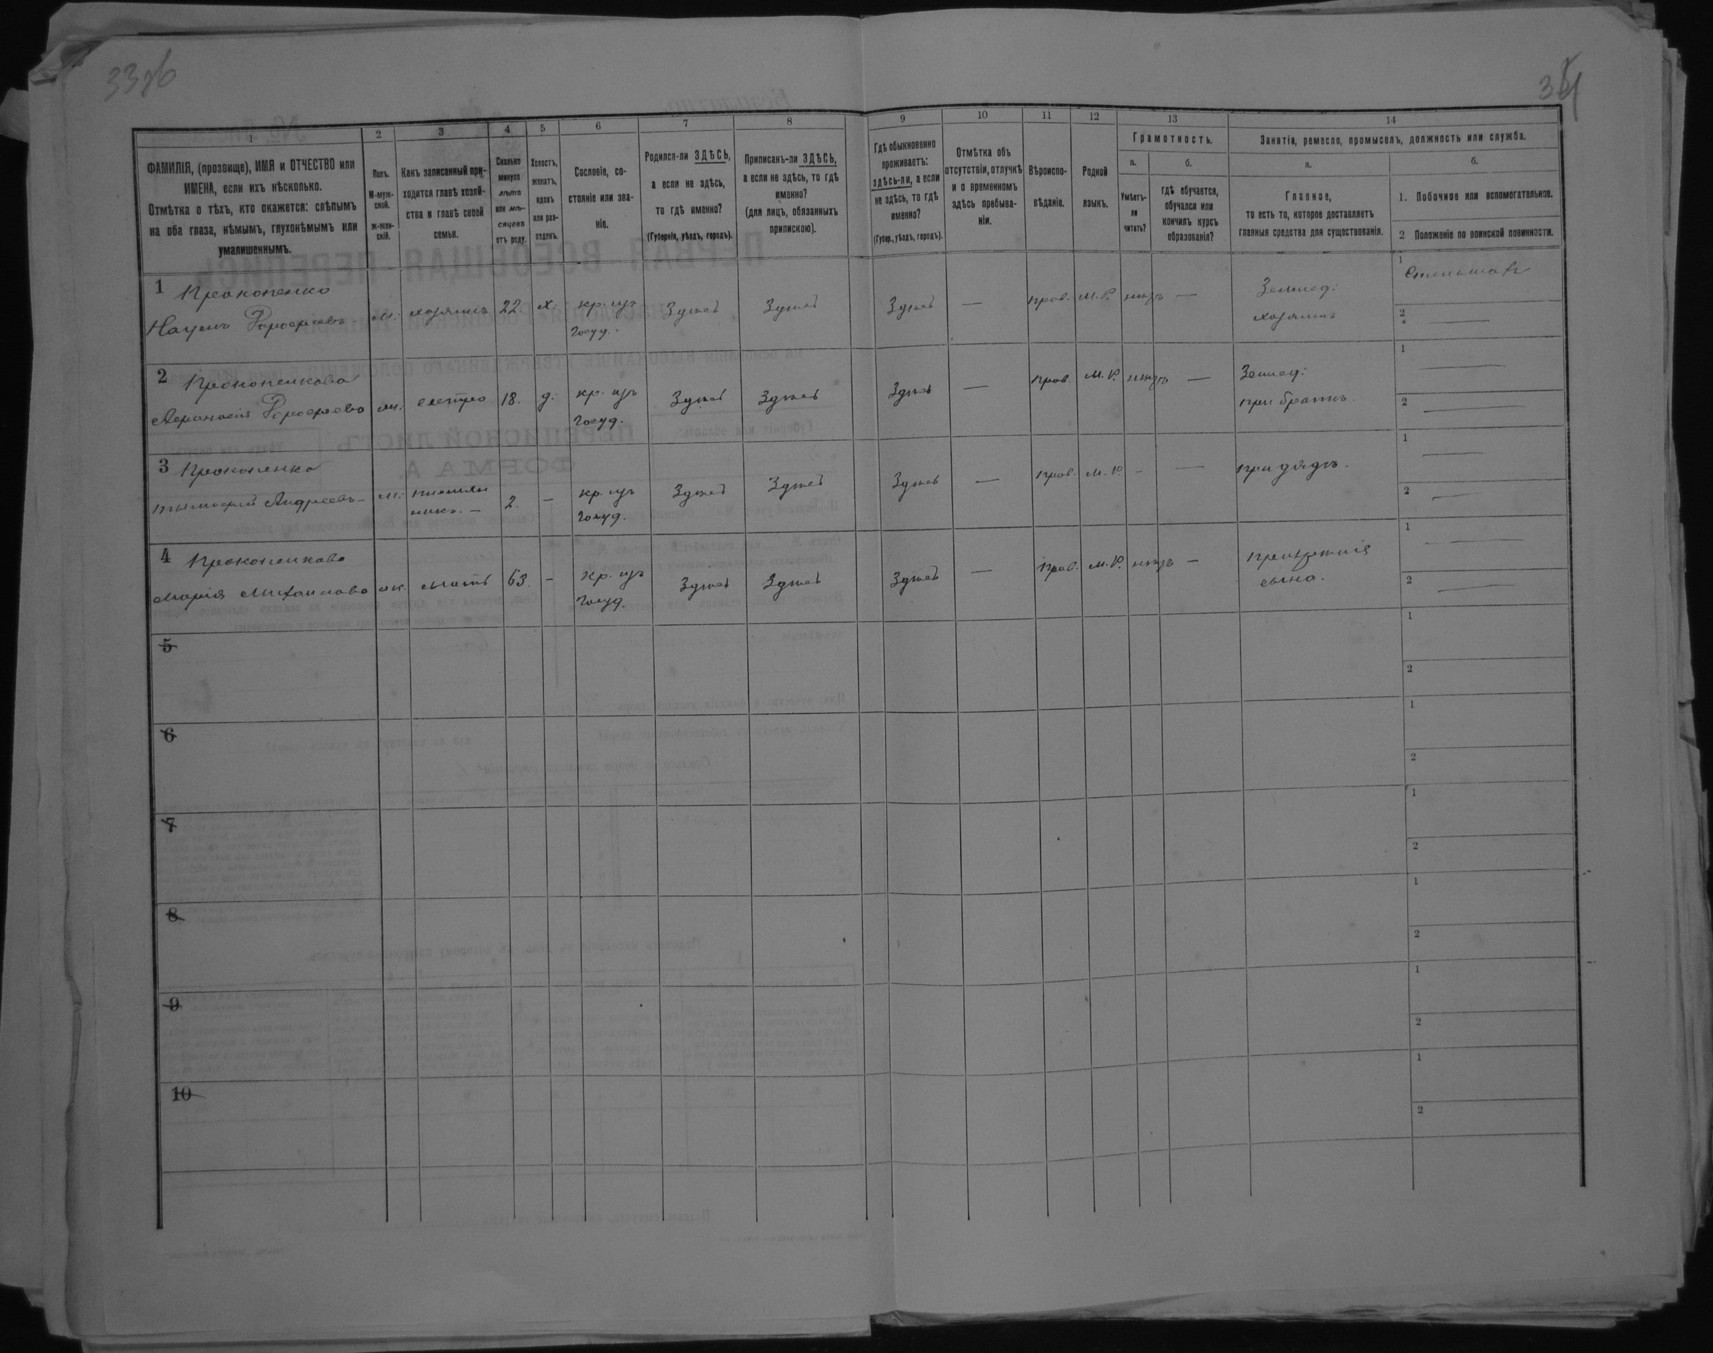 33об
34
1
2
3
4
5
6
7
8
9
10
11
12
13
14
ФАМИЛІЯ, (прозвище), ИМЯ и ОТЧЕСТВО или
ИМЕНА, если ихъ нѣсколько.
Отмѣтка о тѣхъ, кто окажется: слѣпымъ
на оба глаза, нѣмымъ, глухонѣмымъ или
умалишеннымъ.
Полъ.
М-муж-
ской.
Ж-жен-
скій.
Какъ записанный при-
ходится главѣ хозяй-
ства и главѣ своей
семьи.
Сколько
минуло
лѣтъ
или мѣ-
сяцевъ
отъ роду.
Холостъ,
женатъ,
вдовъ
или раз-
веденъ.
Сословіе, со-
стояніе или зва-
ніе.
Родился-ли ЗДѢСЬ,
а если не здѣсь,
то гдѣ именно?
(Губернія, уѣздъ, городъ).
Приписанъ-ли ЗДѢСЬ,
а если не здѣсь, то гдѣ
именно?
(для лицъ, обязанныхъ
припискою).
Гдѣ обыкновенно
проживаетъ:
здѣсь-ли, а если
не здѣсь, то гдѣ
именно?
(Губер., уѣздъ, городъ).
Отмѣтка объ
отсутствіи, отлучкѣ
и о временномъ
здѣсь пребыва-
ніи.
Вѣроиспо-
вѣданіе.
Родной
языкъ.
Грамотность.
а.
Умѣетъ-
ли
читать?
б.
гдѣ обучается,
обучался или
кончилъ курсъ
образованія?
Занятія, ремесло, промыселъ, должность или служба.
а.
Главное,
то есть то, которое доставляетъ
главныя средства для существованія.
б.
1. Побочное или вспомогательное.
2 Положеніе по воинской повинности.
1 Прокопенко
Наумъ Ѳарофѣевъ м. хозяинъ 22 х. кр. изъ госуд. Здѣсь Здѣсь Здѣсь — прав. М.Р. нѣтъ — Землед. хозяинъ
1
2 —
2 Прокопенкова
Афанасія ж. сестра 18. д. кр. изъ госуд. Здѣсь Здѣсь Здѣсь — прав. М.Р. нѣтъ — Землед. при братѣ.
1 —
2 —
3 Прокопенко
Тимофей Андреевъ м. племян-
никъ. 2. — кр. изъ госуд. Здѣсь Здѣсь Здѣсь — прав. М.Р. - — при дядѣ.
1 —
2 —
4 Прокопенкова
Марія Михайлова ж. мать 63. - кр. изъ госуд. Здѣсь Здѣсь Здѣсь — прав. М.Р. нѣтъ — при сына.
1 —
2 —
5
1
2
6
1
2
7
1
2
8
1
2
9
1
2
10
1
2